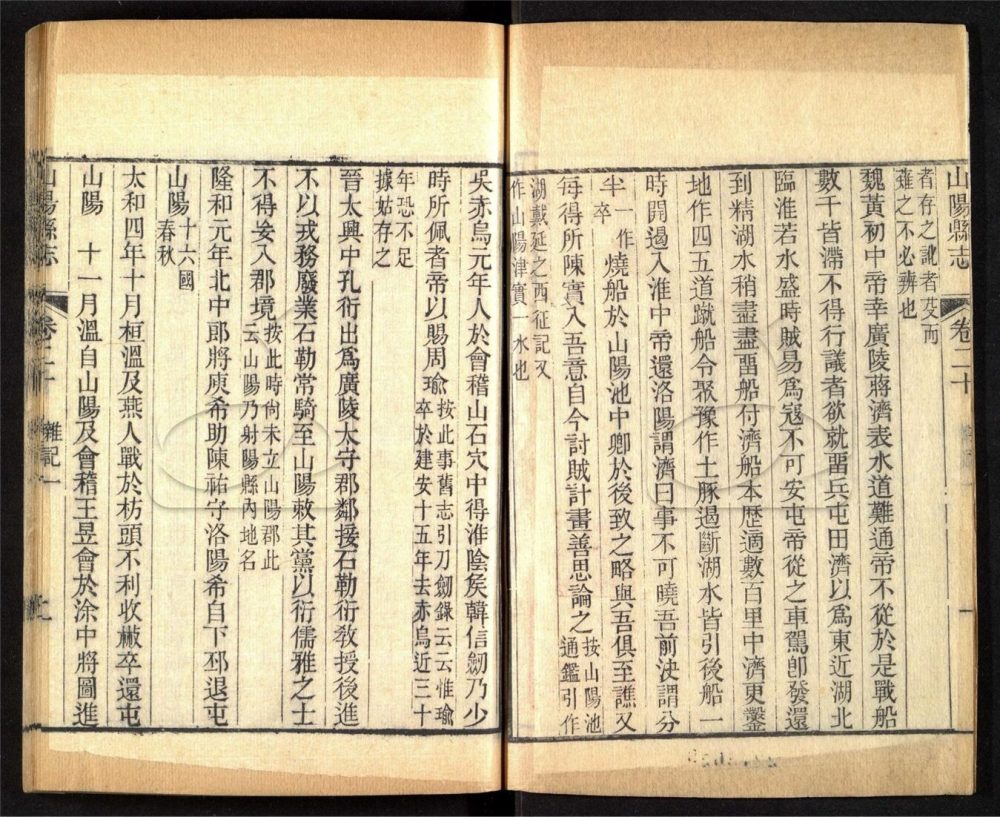 山陽縣志 卷二十 一
者存之訛者芟而
蕹之不必辨也
魏黃初中帝幸廣陵蔣濟表水道難通帝不從於是戰船
數千皆滯不得行議者欲就畱兵屯田濟以爲東近湖北
臨淮若水盛時賊易爲寇不可安屯帝從之車駕卽發還
到精湖水稍盡盡畱船付濟船本歷適數百里中濟更鑿
地作四五道蹴船令聚豫作土豚遏斷湖水皆引後船一
時開遏入淮中帝還洛陽謂濟曰事不可曉吾前決謂分
半一作卒燒船於山陽池中卿於後致之略與吾俱至譙又
每得所陳實入吾意自今討賊計畫善思論之按山陽池通鑑引作
湖戴延之西征記又
作山陽津實一水也
吳赤烏元年人於會稽山石穴中得淮陰矦韓信劒乃少
時所佩者帝以賜周瑜按此事舊志引刀劒錄云云惟瑜卒於建安十五年去赤烏近三十
年恐不足
據姑存之
晉太興中孔衍出爲廣陵太守郡鄰接石勒衍敎授後進
不以戎務廢業石勒常騎至山陽敕其黨以衍儒雅之士
不得妄入郡境按此時尙未立山陽郡此云山陽乃射陽縣內地名
隆和元年北中郎將庾希助陳祐守洛陽希自下邳退屯
山陽十六國春秋
太和四年十月桓溫及燕人戰於枋頭不利收散卒還屯
山陽 十一月溫自山陽及會稽王昱會於涂中將圖進
山陽縣志 卷二十 雜記一